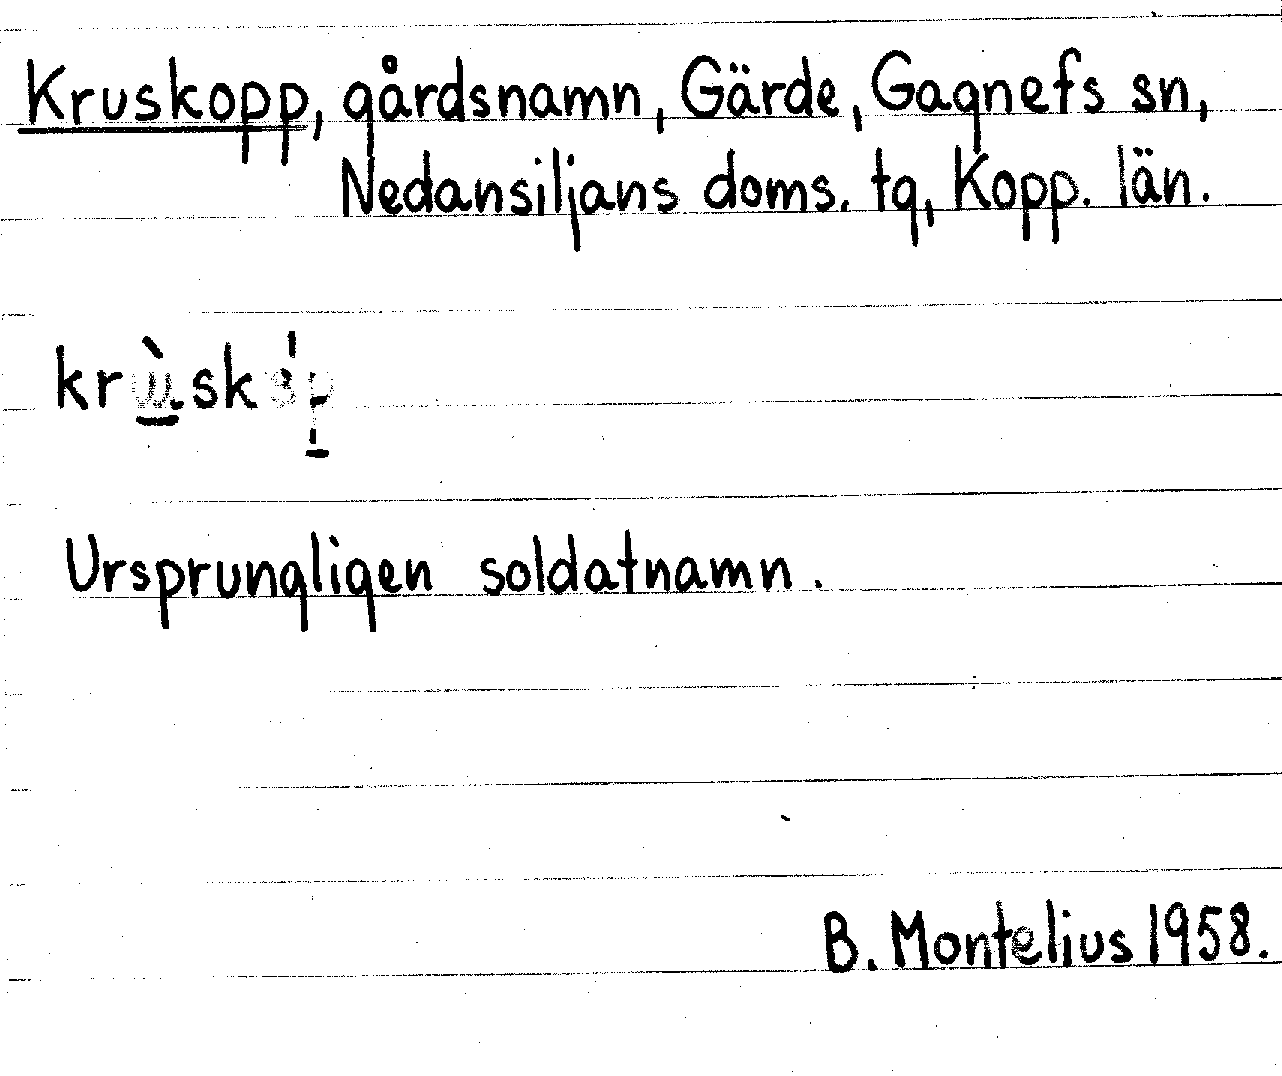 Kruskopp, gårdsnamn, Gärde, Gagnefs sn,
Nedansiljans doms. tg, Kopp. län.
Ursprungligen soldatnamn.
B. Montelius 1958.